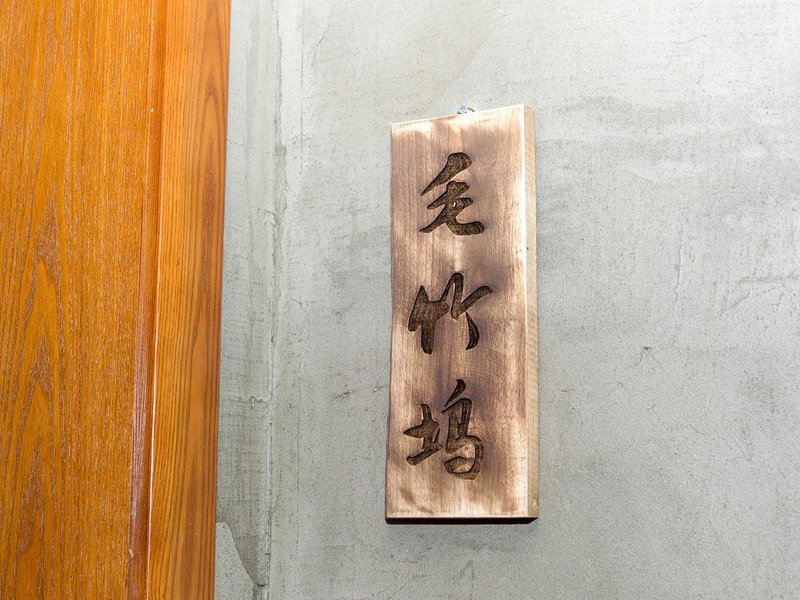 毛竹坞